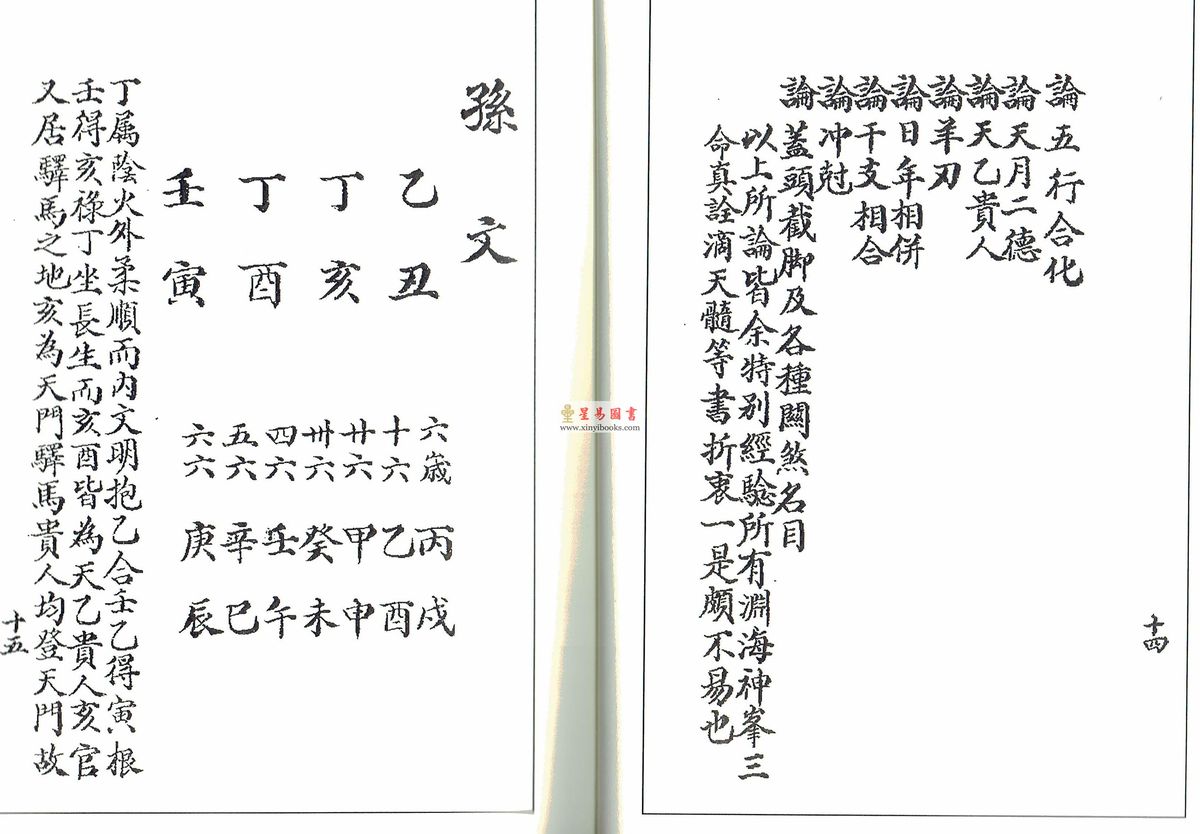 論五行合化
論天月二德
論天乙貴人
論羊刃
論日年相併
論干支相合
論冲尅
論蓋頭截脚及各種関煞名目
以上所論皆余特別經驗所有淵海神峯三
命真詮滴天髓等書折衷一是頗不易也
十四
孫文
乙丑
丁亥
丁酉
壬寅
六歲 丙戌
十六 乙酉
廿六 甲申
卅六 癸未
四六 壬午
五六 辛巳
六六 庚辰
丁属陰火外柔順而内文明抱乙合壬乙得寅根
壬得亥祿丁坐長生而亥酉皆為天乙貴人亥官
又居驛馬之地亥為天門驛馬貴人均登天門故
十五
星易圖書
www.xinyibooks.com